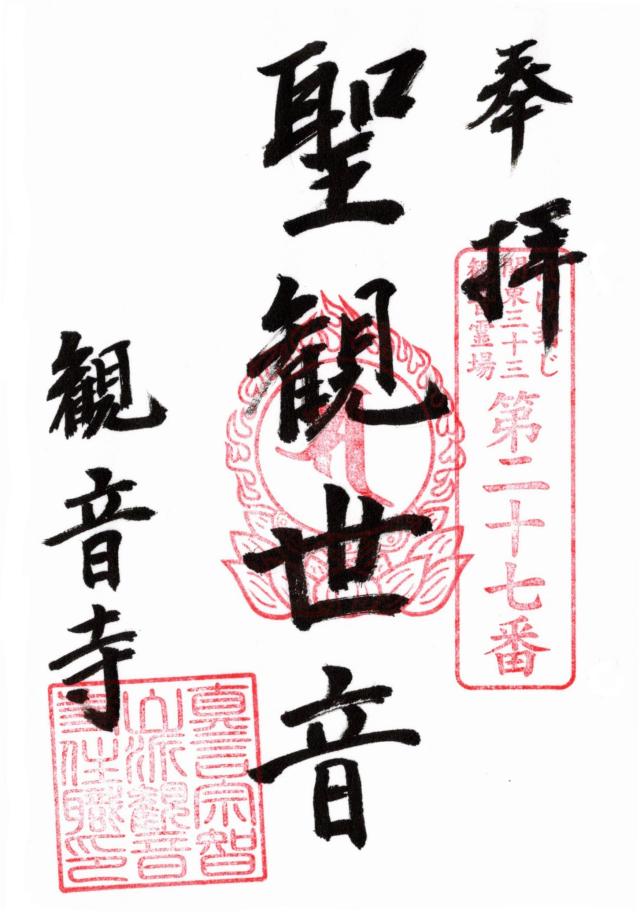 奉拝
関東三十三
観音霊場
第二十七番
聖観世音
観音寺
真言宗智
山派観音
寺住職印